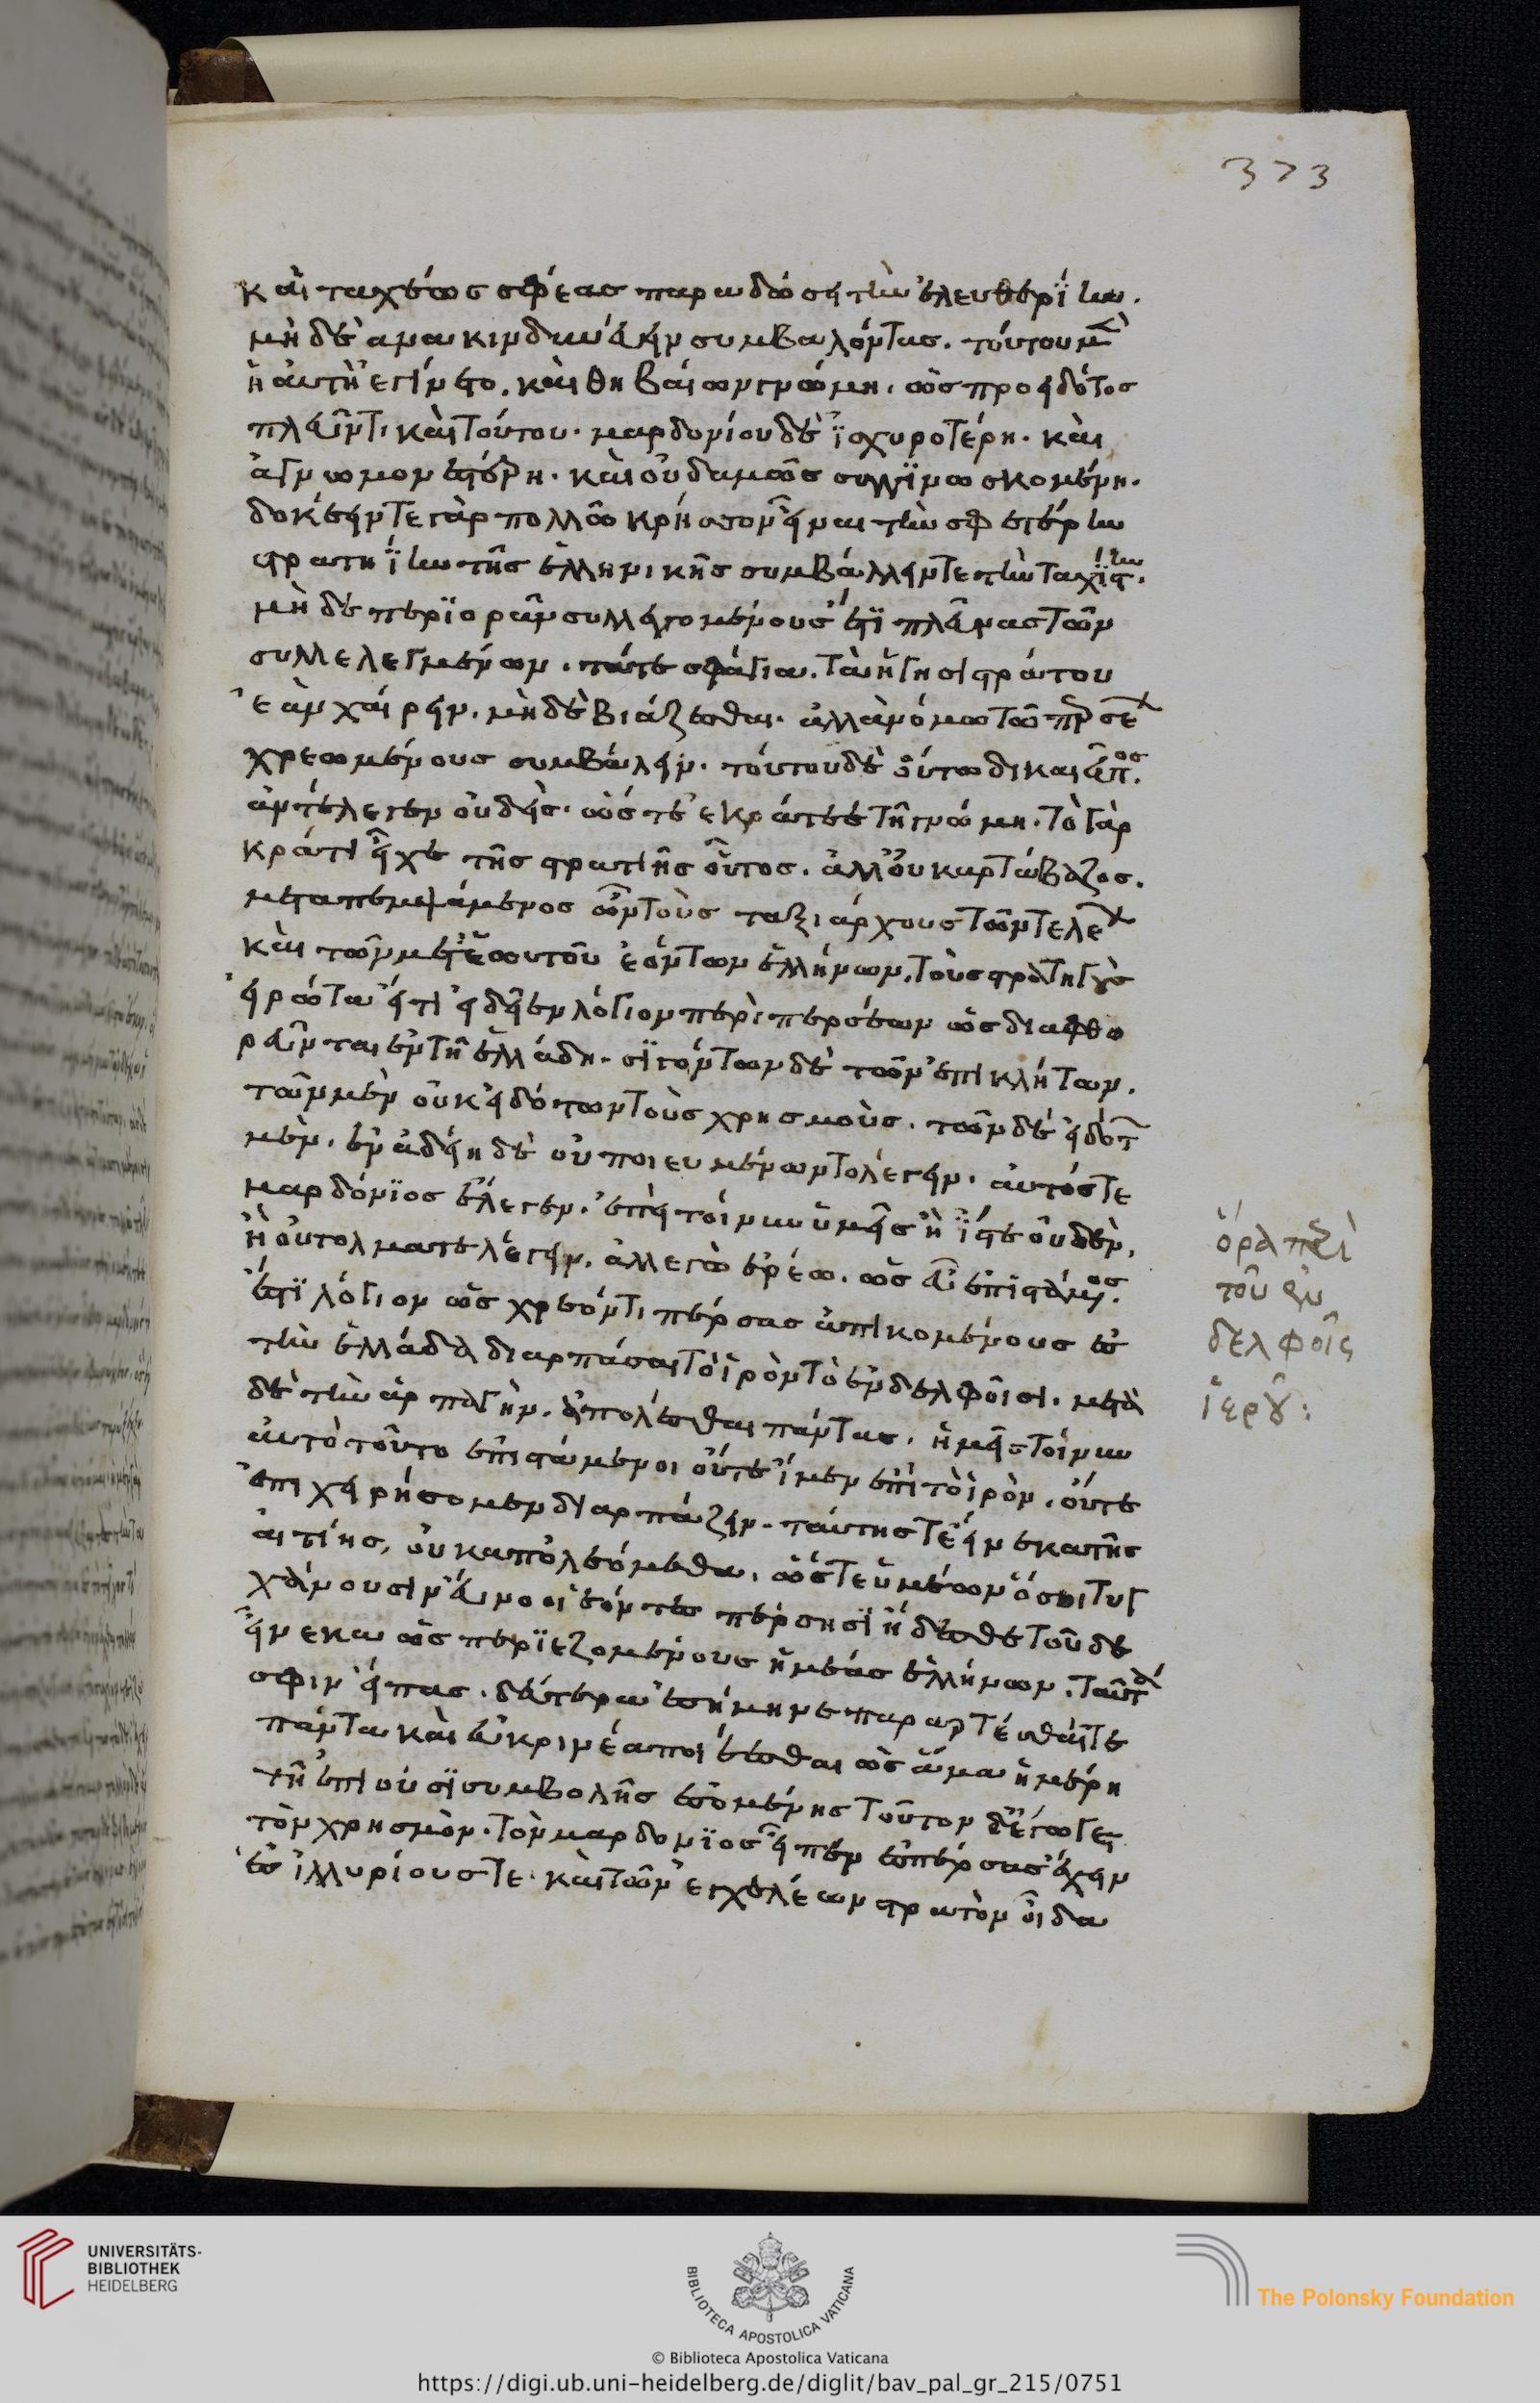 373
καὶ ταχέως σφέας παραδώσειν τὴν ἐλευθερίην.
μὴ δὲ ἀνακινδυνεύειν συμβαλόντας. τούτου μὲν
ἡ αὐτὴ ἐγίνετο. καὶ θηβαίων γνώμη. ὡς προειδότος
πλεῦντι καὶ τούτου. μαρδονίου δὲ ἰσχυροτέρη. καὶ
ἀγνωμονεστέρη. καὶ οὐδαμῶς συγγινωσκομένη.
δοκέειν τε γὰρ πολλῶ κρήσσονα εἶναι τὴν σφετέρην
στρατηΐην τῆς ἑλληνικῆς συμβάλλειν τε τὴν ταχίστην.
μὴ δὲ περιορᾶν συλλεγομένους ἔτι πλεῦνας τῶν
συλλελεγμένων. τά τε σφάγια. τὰ ἡγησιστράτου
ἐᾶν χαίρειν. μὴ δὲ βιάζεσθαι. ἀλλὰ νόμω τῶ περσέων
χρεωμένους συμβάλειν. τούτου δὲ οὕτω δικαιεῦντος.
ἀντέλεγεν οὐδείς. ὥστε ἐκράτεε τῆ γνώμη. τὸ γὰρ
κράτος εἶχε τῆς στρατιῆς οὗτος. ἀλλ' οὐκ ἀρτάβαζος.
μεταπεμψάμενος ὦν τοὺς ταξιάρχους τῶν τελέων
καὶ τῶν μετ' ἑωυτοῦ ἐόντων ἑλλήνων. τοὺς στρατηγοὺς
εἰρώτα εἴ τι εἰδεῖεν λόγιον περὶ περσέων ὡς διαφθε
ρέονται ἐν τῆ ἑλλάδι. σιγόντων δὲ τῶν ἐπικλήτων.
τῶν μὲν οὐκ εἰδότων τοὺς χρησμούς. τῶν δὲ εἰδότων
μὲν. ἐν ἀδείη δὲ οὐ ποιευμένων τὸ λέγειν. αὐτός τε
μαρδόνιος ἔλεγεν. ἐπεὶ τοίνυν ὑμεῖς ἢ ἴστε οὐδὲν.
ἢ οὐ τολμᾶτε λέγειν. ἀλλ' ἐγὼ ἐρέω. ὡς εὖ ἐπιστάμενος.
ἔστι λόγιον ὡς χρεόν ἐστι πέρσας ἀπικομένους ἐς
τὴν ἑλλάδα διαρπάσαι τὸ ἱρὸν τὸ ἐν δελφοῖσι. μετὰ
δὲ τὴν ἁρπαγὴν. ἀπολέσθαι πάντας. ἡμεῖς τοίνυν
αὐτὸ τοῦτο ἐπιστάμενοι οὔτε ἴμεν ἐπὶ τὸ ἱρὸν. οὔτε
ἐπιχειρήσομεν διαρπάζειν. ταύτης τε εἵνεκα τῆς
αἰτίης. οὐκ ἀπολεόμεθα. ὥστε ὑμέων ὅσοι τυγ
χάνουσιν εὔνοοι ἐόντες πέρσησι ἥδεσθε τοῦδε
εἵνεκα ὡς περιεσομένους ἡμέας ἑλλήνων. ταῦτά
σφιν εἴπας. δεύτερα ἐσήμηνε παραρτέεσθαί τε
πάντα καὶ εὐκρινέα ποιέεσθαι ὡς ἅμα ἡμέρη
τῆ ἐπιούση συμβολῆς ἐσομένης τοῦτον δ' ἔγωγε
τὸν χρησμὸν. τὸν μαρδόνιος εἶπεν ἐς πέρσας ἔχειν
ἐς ἰλλυρίους τε καὶ τῶν ἐγχελέων στρατὸν οἶδα
ὅρα περὶ
τοῦ ἐν
δελφοῖς
ἱεροῦ:
UNIVERSITÄTS-
BIBLIOTHEK
HEIDELBERG
BIBLIOTECA APOSTOLICA VATICANA
The Polonsky Foundation
© Biblioteca Apostolica Vaticana
https://digi.ub.uni-heidelberg.de/diglit/bav_pal_gr_215/0751